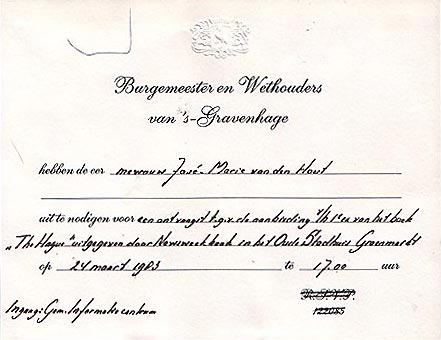 Burgemeester en Wethouders
van 's-Gravenhage
hebben de eer mevrouw José-Marie van den Hout
uit te nodigen voor een ontvangst t.g.v. de aanbieding v/h 1e ex van het boek
„The Hague" uitgegeven door Newsweekbook in het Oude Stadhuis Groenmarkt
op 24 maart 1983 te 17.00 uur
R.S.V.P.
122085
Ingang: Gem. Informatiecentrum